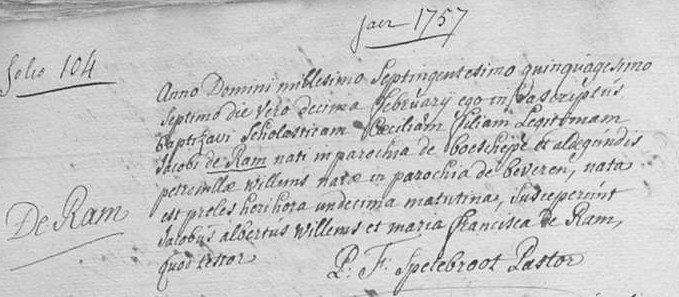 jaer 1757
folio 104
Anno Domini millesimo Septingentesimo quinquagesimo
Septimo die vero decima february ego infrascriptus
baptizavi Scholasticam Cæciliam filiam Legitimam
Jacobi de Ram nati in parochia de boeschepe et aldegundis
petronillæ Willems natæ in parochia de beveren, nata
est proles heri hora undecima matutina, Susceperunt
Jacobus albertus Willems et maria francisca de Ram,
quod testor
De Ram
P: F: Spelebroot Pastor